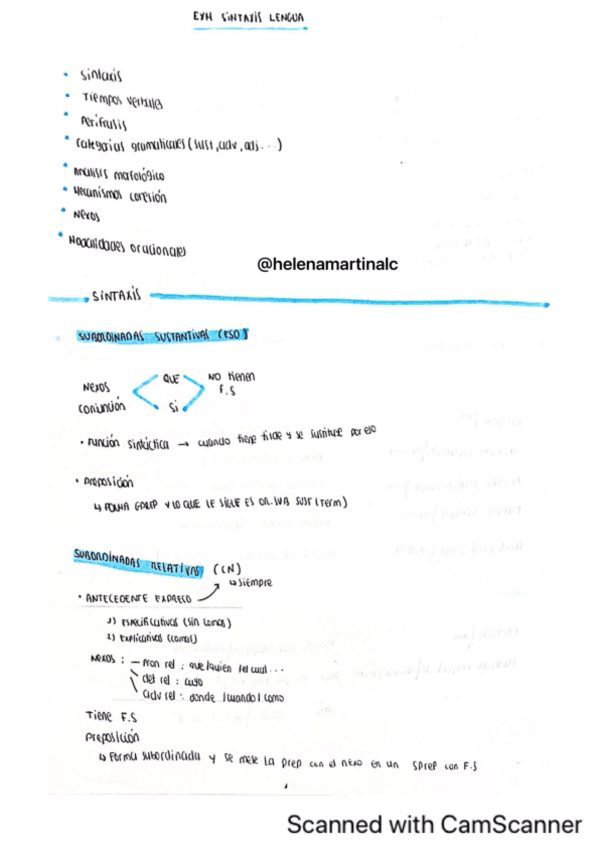 EXM SINTAXIS LENGUA
• Sintaxis
• Tiempos verbales
• Perifrasis
• Categorias gramaticales (sust, adv, adj...)
• Análisis mofológico
• Mecanismos coesión
• Nexos
• Modalidades oracionales
@helenamartinalc
SINTAXIS
SUBORDINADAS SUSTANTIVAS (ESO)
Nexos conjunción
QUE
Si
NO tienen F.S
• Función sintáctica → cuando tiene tilde y se sustituye por eso
• Preposición
↳ FORMA GPREP Y LO QUE LE SIGUE ES OR. SUB SUST (Term)
SUBORDINADAS RELATIVAS (CN)
↳ siempre
• ANTECEDENTE EXPRESO
1) Especificativas (sin comas)
2) Explicativas (comas)
Nexos : — Pron rel : que / quien / el cual...
det rel : cuyo
adv rel : donde / cuando / como
Tiene F.S
Preposición
↳ Forma subordinada y se mete la prep con el nexo en un SPrep con F.S
Scanned with CamScanner